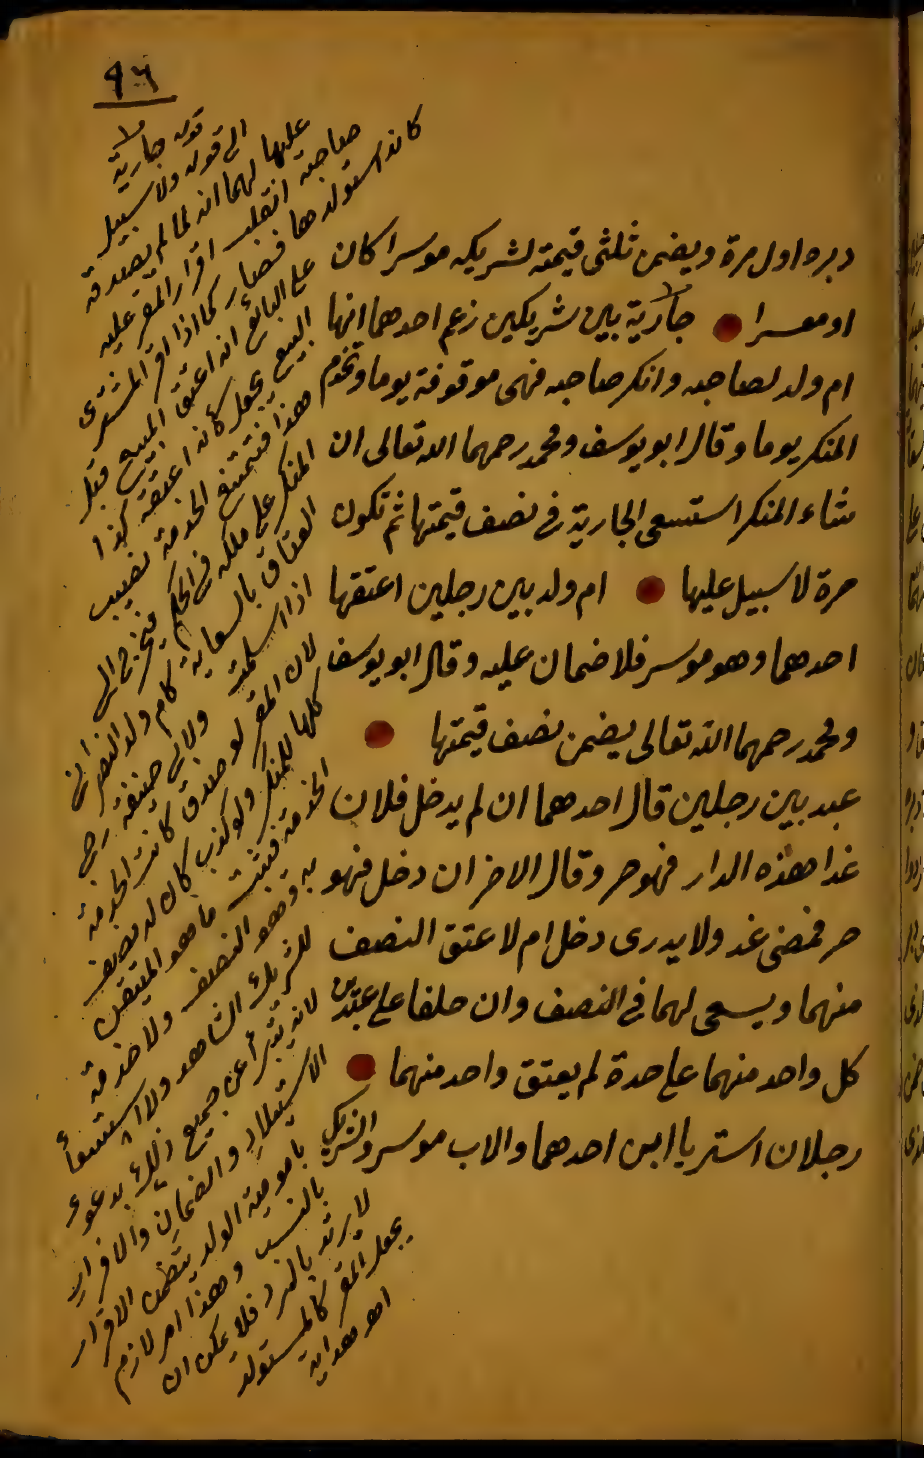 ٩٦
دبره اول مرة ويضمن ثلثى قيمته لشريكه موسرا كان
او معسرا جارية بين شريكين زعم احدهما انها
ام ولد لصاحبه وانكر صاحبه فهى موقوفة يوما وتخدم
المنكر يوما وقال ابو يوسف ومحمد رحمهما الله تعالى ان
شاء المنكر استسعى الجارية فى نصف قيمتها ثم تكون
حرة لا سبيل عليها ام ولد بين رجلين اعتقها
احدهما وهو موسر فلا ضمان عليه وقال ابو يوسف
ومحمد رحمهما الله تعالى يضمن نصف قيمتها
عبد بين رجلين قال احدهما ان لم يدخل فلان
غدا هذه الدار فهو حر وقال الاخر ان دخل فهو
حر فمضى غد ولا يدرى دخل ام لا عتق النصف
منهما ويسعى لهما فى النصف وان حلفا على عبدين
كل واحد منهما على حدة لم يعتق واحد منهما
رجلان استريا ابن احدهما والاب موسر والشريك
قوله جارية
الى قوله ولا سبيل
عليها لهما انه لما لم يصدقه
صاحبه انقلب اقرار المقر عليه
كانه استولدها فصار كما اذا اقر المشترى
على البائع انه اعتق المبيع قبل
البيع يجعل كانه اعتقه كذا
هذا فتمتنع الخدمة نصيب
المنكر على ملكه فى الحكم فيخرج الى
العتاق بالسعاية كام ولد النصرانى
اذا اسلمت ولابى حنيفة رح
لان المقر لو صدق كانت الخدمة
كلها للمنكر ولو كذب كان له نصف
الخدمة فيثبت ما هو المتيقن
به وهو النصف ولا خدمة
للشريك الشاهد ولا استسعاء
لانه يتبرأ عن جميع ذلك بدعوى
الاستيلاد والضمان والاقرار
بامومية الولد يتضمن الاقرار
بالنسب وهذا امر لازم
لا يرتد بالرد فلا يمكن ان
يجعل المقر كالمستولد
اهـ هداية